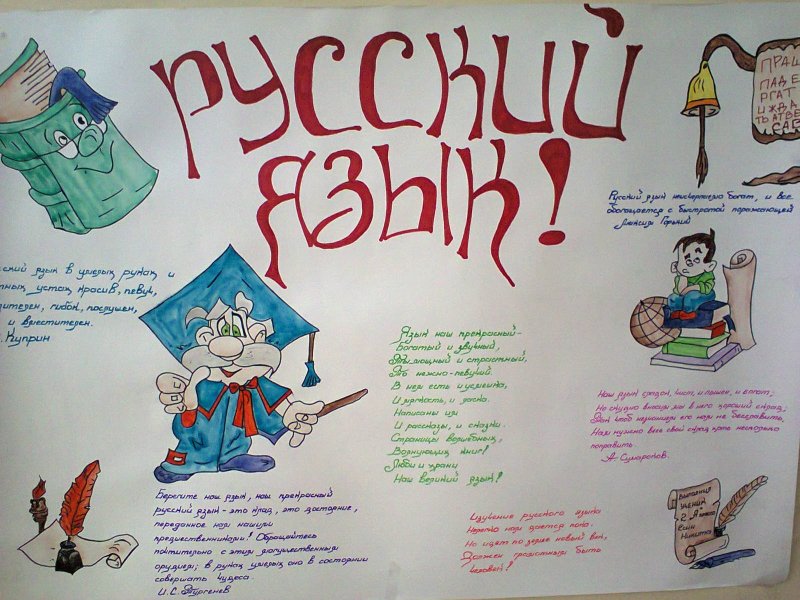 РУССКИЙ
ЯЗЫК!
ПРАШ
ПАДЕ
РГАТ
И ЖДА
ТЬ АТВЕ
САВ
Русский язык неисчерпаемо богат, и все
обогащается с быстротой поражающей
Максим Горький
ский язык в умелых руках и
тных устах красив, певуч,
гибок, послушен,
и вместителен.
Куприн
Язык наш прекрасный-
Богатый и звучный,
То мощный и страстный,
То нежно-певучий.
В нем есть и усмешка,
И мягкость, и ласка.
Написаны им
И рассказы, и сказки.
Страницы волшебных,
Волнующих книг!
Люби и храни
Наш великий язык!
Наш язык сладок, чист, и пышен, и богат;
Но скудно вносим мы в него хороший склад;
Так чтоб незнанием его нам не бесславить,
Нам нужно весь свой склад хоть несколько
поправить.
А. Сумароков.
Берегите наш язык, наш прекрасный
русский язык - это клад, это достояние,
переданное нам нашими
предшественниками! Обращайтесь
почтительно с этим могущественным
орудием; в руках умелых оно в состоянии
совершать чудеса.
И.С. Тургенев
Изучение русского языка
Нелегко нам дается пока.
Но идет по земле новый век,
Должен грамотным быть
человек!
Выполнил
ученик
2 "А" класса
Никита